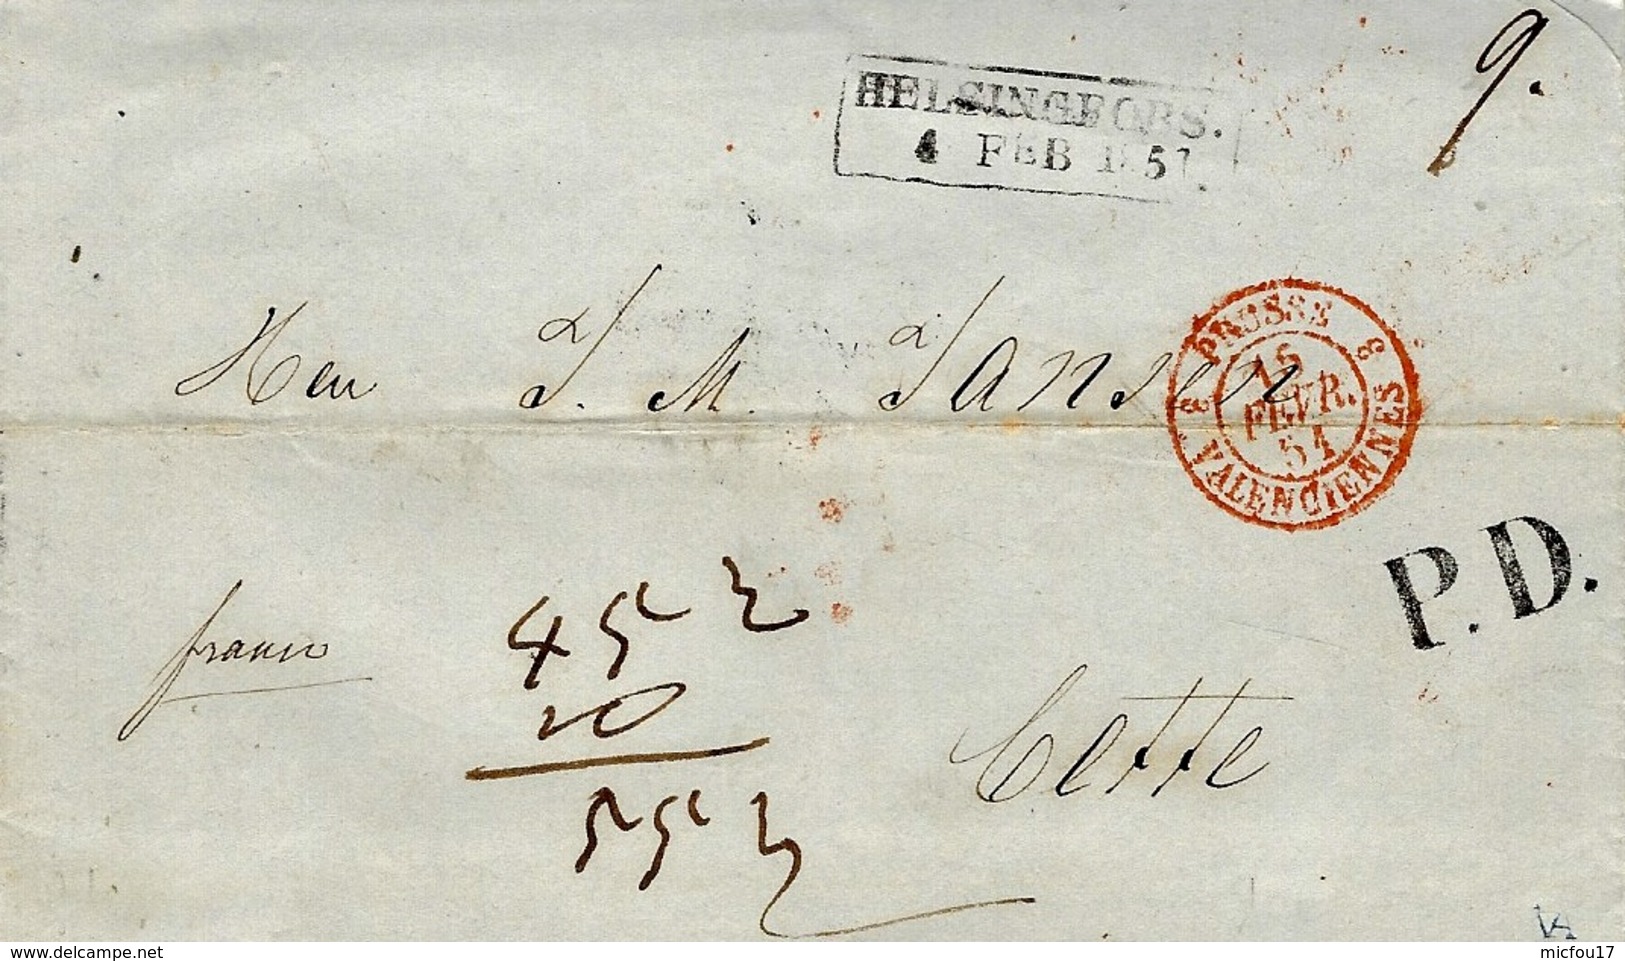 9.
HELSINGFORS.
4 FEB 1851.
Herr J. M. Jansen
PRUSSE
8 8
16
FEVR.
51
VALENCIENNES
P.D.
franco
45
10
55
Cette
www.delcampe.net
micfou17